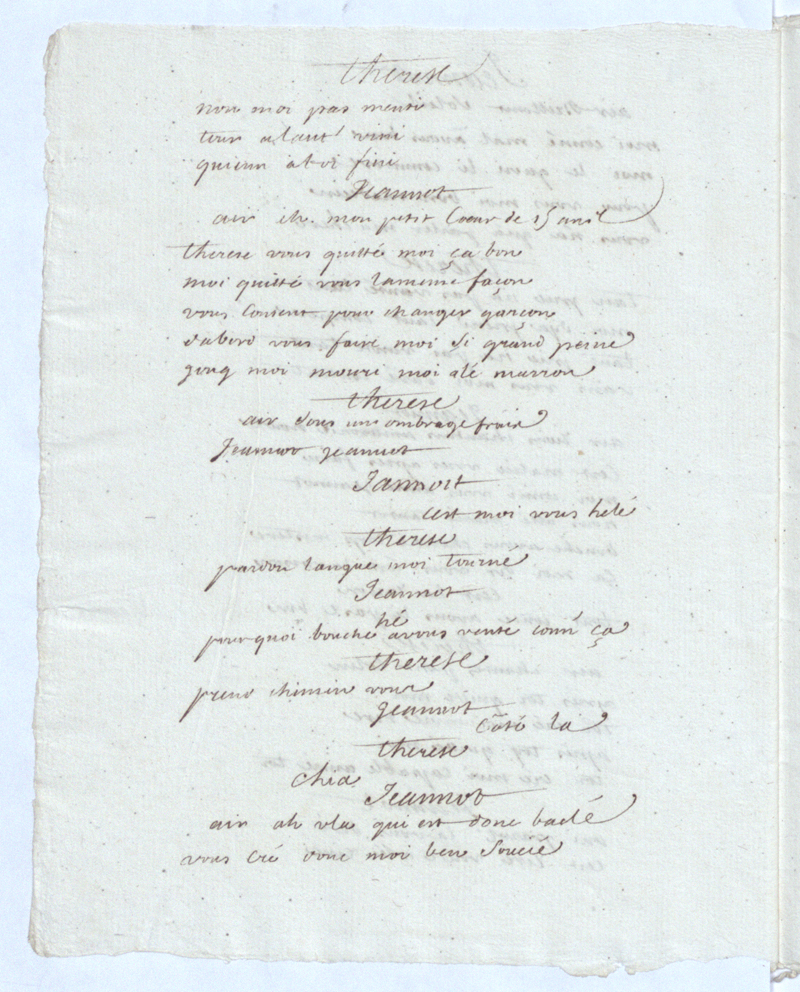 therese
non moi pas menti
tour a laut vini
quienn a toi fini
Jeannot
air eh. mon petit Coeur de 15 anil
therese vous quitté moi ça bon
moi quitté vous lamême façon
vous Consent pour changer garçon
dabord vous faire moi si grand peine
gouq moi mouri moi alé marron
therese
air sous un ombrage frais
Jeannot jeannot
Jannoit
cest moi vous helé
therese
pardon langue moi tourné
Jeannot
hé
pourquoi bouche a vous venté comm ça
therese
prend chimin vous
Jeannot
Coté la
therese
chia
Jeannot
air ah vla qui est donc baclé
vous cré donc moi ben Soucié